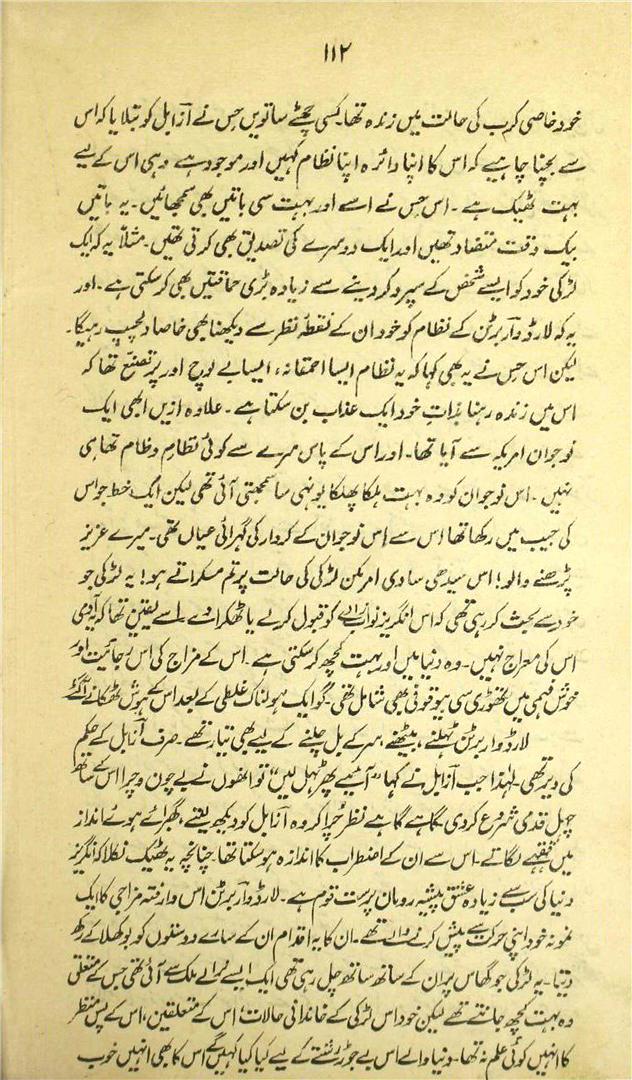 ۱۱۲
خود خاصی کرب کی حالت میں زندہ تھا۔ کسی چھٹے ساتویں حِس نے آزابل کو بتلایا کہ اس
سے بچنا چاہیے کہ اس کا اپنا دائرہ اپنا نظام کہیں اور موجود ہے وہی اس کے لیے
بہت ٹھیک ہے۔ اس حِس نے اسے اور بہت سی باتیں بھی سمجھائیں۔ یہ باتیں
بیک وقت متضاد تھیں اور ایک دوسرے کی تصدیق بھی کرتی تھیں۔ مثلاً یہ کہ ایک
لڑکی خود کو ایسے شخص کے سپرد کر دینے سے زیادہ بڑی حماقتیں بھی کر سکتی ہے۔ اور
یہ کہ لارڈ وآربرٹن کے نظام کو خود ان کے نقطۂ نظر سے دیکھنا بھی خاصا دلچسپ رہیگا۔
لیکن اس حِس نے یہ بھی کہا کہ یہ نظام ایسا احمقانہ، ایسا بے لوچ اور پرتصنّع تھا کہ
اس میں زندہ رہنا بذاتِ خود ایک عذاب بن سکتا ہے۔ علاوہ ازیں ابھی ایک
نوجوان امریکہ سے آیا تھا۔ اور اس کے پاس سرے سے کوئی نظام وظام تھا ہی
نہیں۔ اس نوجوان کو وہ بہت ہلکا پھلکا یونہی سا سمجھتی آئی تھی لیکن ایک خط جو اس
کی جیب میں رکھا تھا اس سے اس نوجوان کے کردار کی گہرائی عیاں تھی۔ میرے عزیز
پڑھنے والو! اس سیدھی سادی امریکن لڑکی کی حالت پر تم مسکراتے ہو! یہ لڑکی جو
خود سے بحث کر رہی تھی کہ اس انگریز نوابزادے کو قبول کرلے یا ٹھکرا دے۔ اسے یقین تھا کہ یہ آدمی
اس کی معراج نہیں۔ وہ دنیا میں اور بہت کچھ کر سکتی ہے۔ اس کے مزاج کی اس رجائیت اور
خوش فہمی میں تھوڑی سی بیوقوفی بھی شامل تھی۔ گو ایک ہولناک غلطی کے بعد اس کے ہوش ٹھکانے آ گئے
لارڈ وآربرٹن ٹہلنے، بیٹھنے، سر کے بل چلنے کے لیے بھی تیار تھے۔ صرف آزابل کے حکم
کی دیر تھی۔ لہٰذا جب آزابل نے کہا "آئیے پھر ٹہل لیں" تو انھوں نے بے چون وچرا اس کے ساتھ
چہل قدمی شروع کر دی۔ گاہے گاہے نظر چرا کر وہ آزابل کو دیکھ لیتے، گھبرائے ہوئے انداز
میں قہقہے لگاتے۔ اس سے ان کے اضطراب کا اندازہ ہو سکتا تھا۔ چنانچہ یہ ٹھیک نکلا کہ انگریز
دنیا کی سب سے زیادہ عشق پیشہ رومان پرست قوم ہے۔ لارڈ وآربرٹن اس وارفتہ مزاجی کا ایک
نمونہ خود اپنی حرکت سے پیش کرنے والے تھے۔ ان کا یہ اقدام ان کے سارے دوستوں کو بوکھلا کے رکھ
دیتا۔ یہ لڑکی جو گھاس پر ان کے ساتھ ساتھ چل رہی تھی ایک ایسے نرالے ملک سے آئی تھی جس کے متعلق
وہ بہت کچھ جانتے تھے لیکن خود اس لڑکی کے خاندانی حالات، اس کے متعلقین، اس کے پس منظر
کا انہیں کوئی علم نہ تھا۔ دنیا والے اس بے جوڑ رشتے کے لیے کیا کیا کہیں گے اس کا بھی انہیں خوب